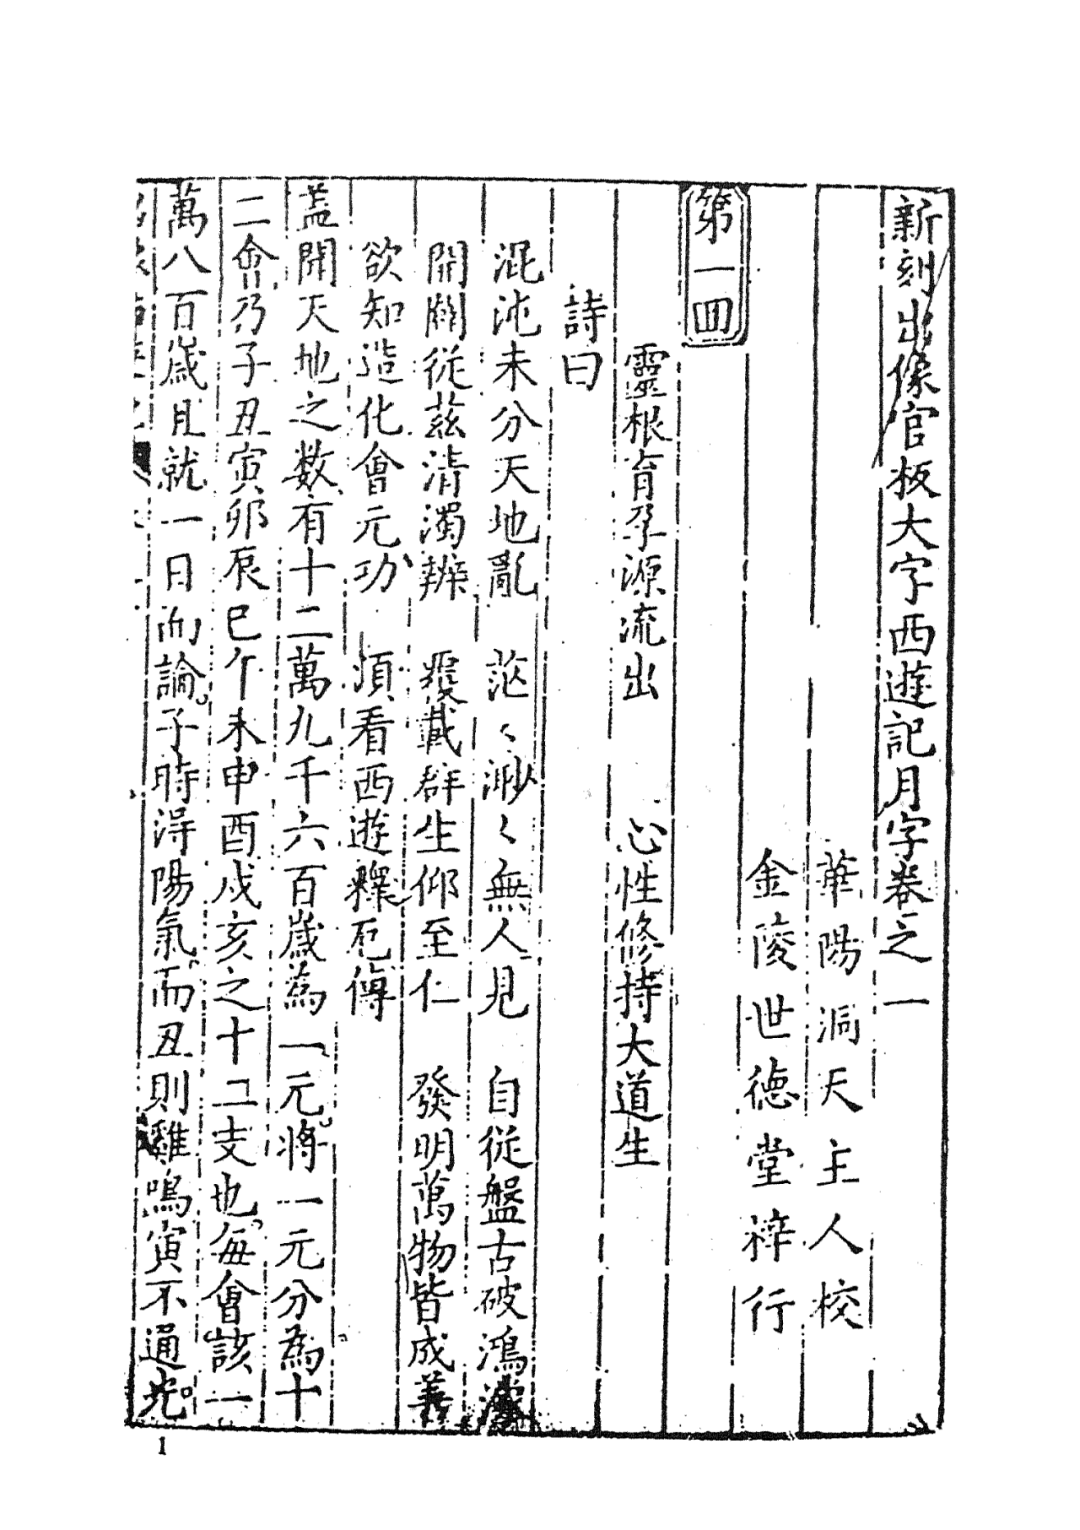 新刻出像官板大字西遊記月字卷之一
華陽洞天主人校
金陵世德堂梓行
第一回
靈根育孕源流出 心性修持大道生
詩曰
混沌未分天地亂 茫〻渺〻無人見 自從盤古破鴻濛
開闢從茲清濁辨 覆載群生仰至仁 發明萬物皆成善
欲知造化會元功 須看西遊釋厄傳
盖開天地之数有十二萬九千六百歲為一元將一元分為十
二會乃子丑寅卯辰巳午未申酉戌亥之十二支也每會該一
萬八百歲且就一日而論子時得陽氣而丑則雞鳴寅不通光
1